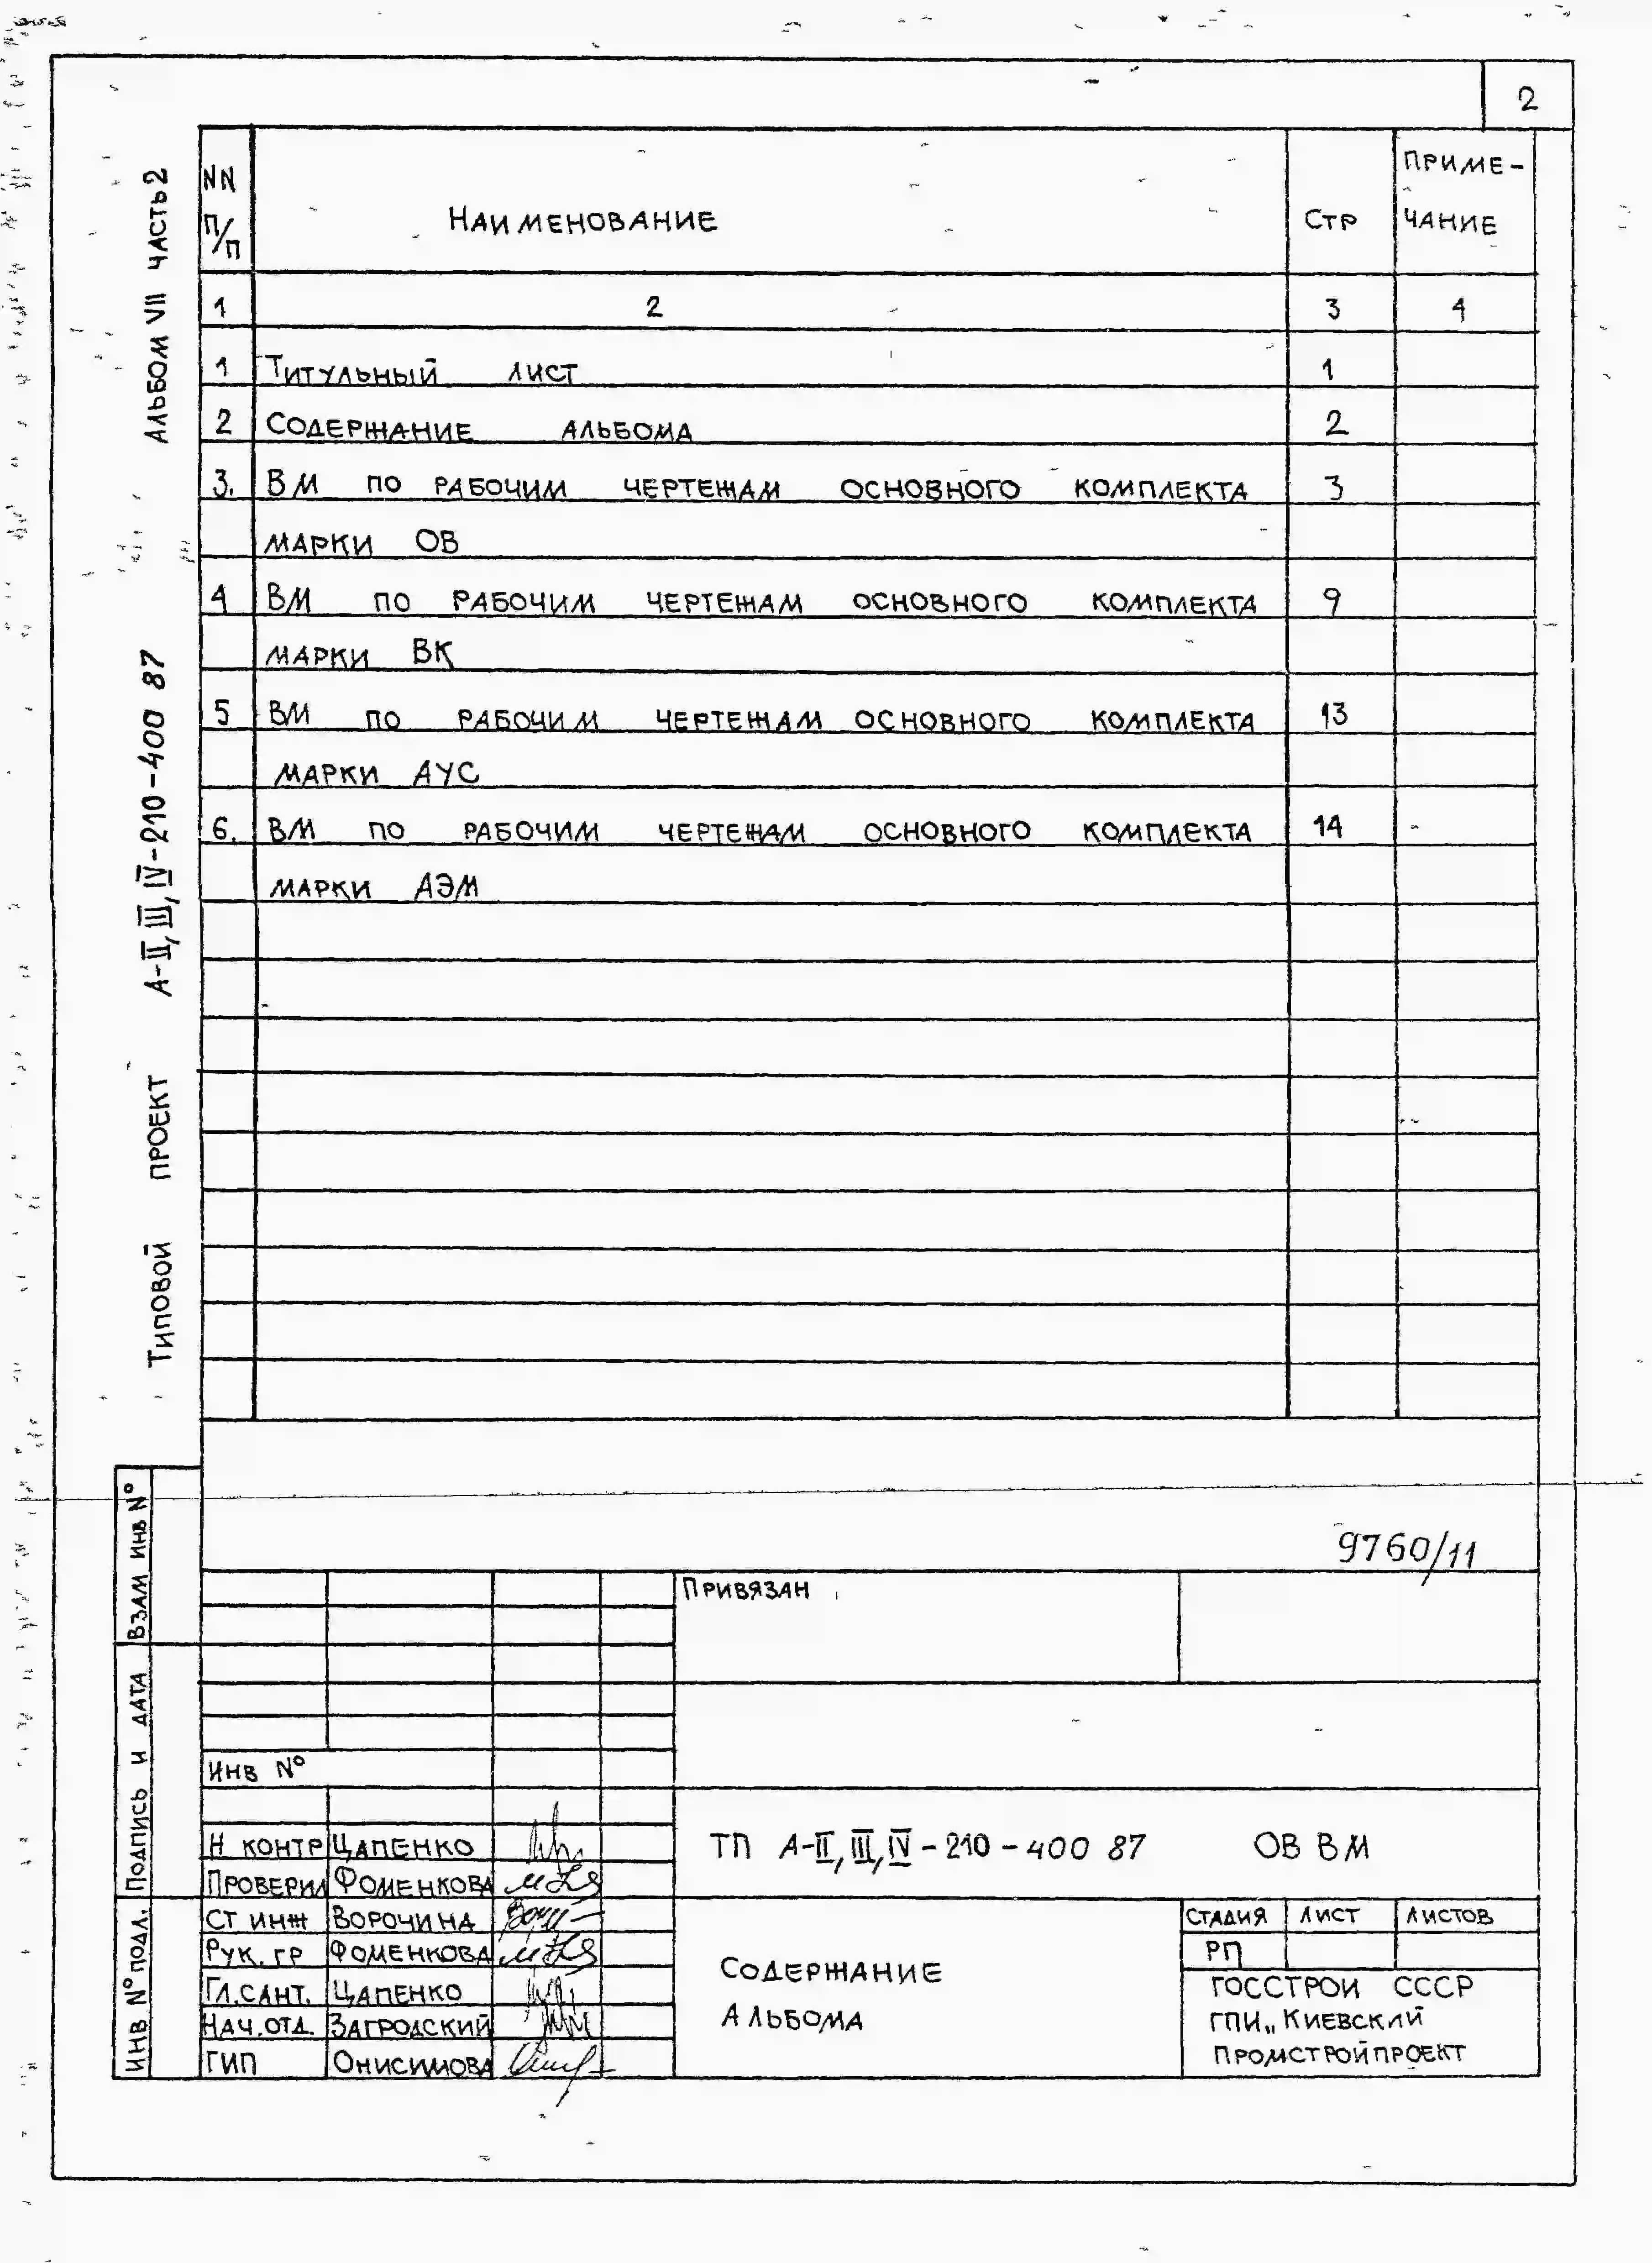 2
Альбом VII часть 2
Типовой проект А-II, III, IV-210-400 87
NN п/п Наименование Стр Приме-
чание
1 2 3 4
1 Титульный лист 1
2 Содержание альбома 2
3. ВМ по рабочим чертежам основного комплекта 3
марки ОВ
4 ВМ по рабочим чертежам основного комплекта 9
марки ВК
5 ВМ по рабочим чертежам основного комплекта 13
марки АУС
6. ВМ по рабочим чертежам основного комплекта 14
марки АЭМ
9760/11
Взам инв №
Подпись и дата
Инв № подл.
Привязан
Инв №
Н контр Цапенко
Проверил Фоменкова
Ст инж Ворочина
Рук. гр Фоменкова
Гл.сант. Цапенко
Нач.отд. Загродский
ГИП Онисимова
ТП А-II, III, IV-210-400 87 ОВ ВМ
Содержание
Альбома
Стадия Лист Листов
РП
Госстрои СССР
ГПИ „Киевский
Промстройпроект